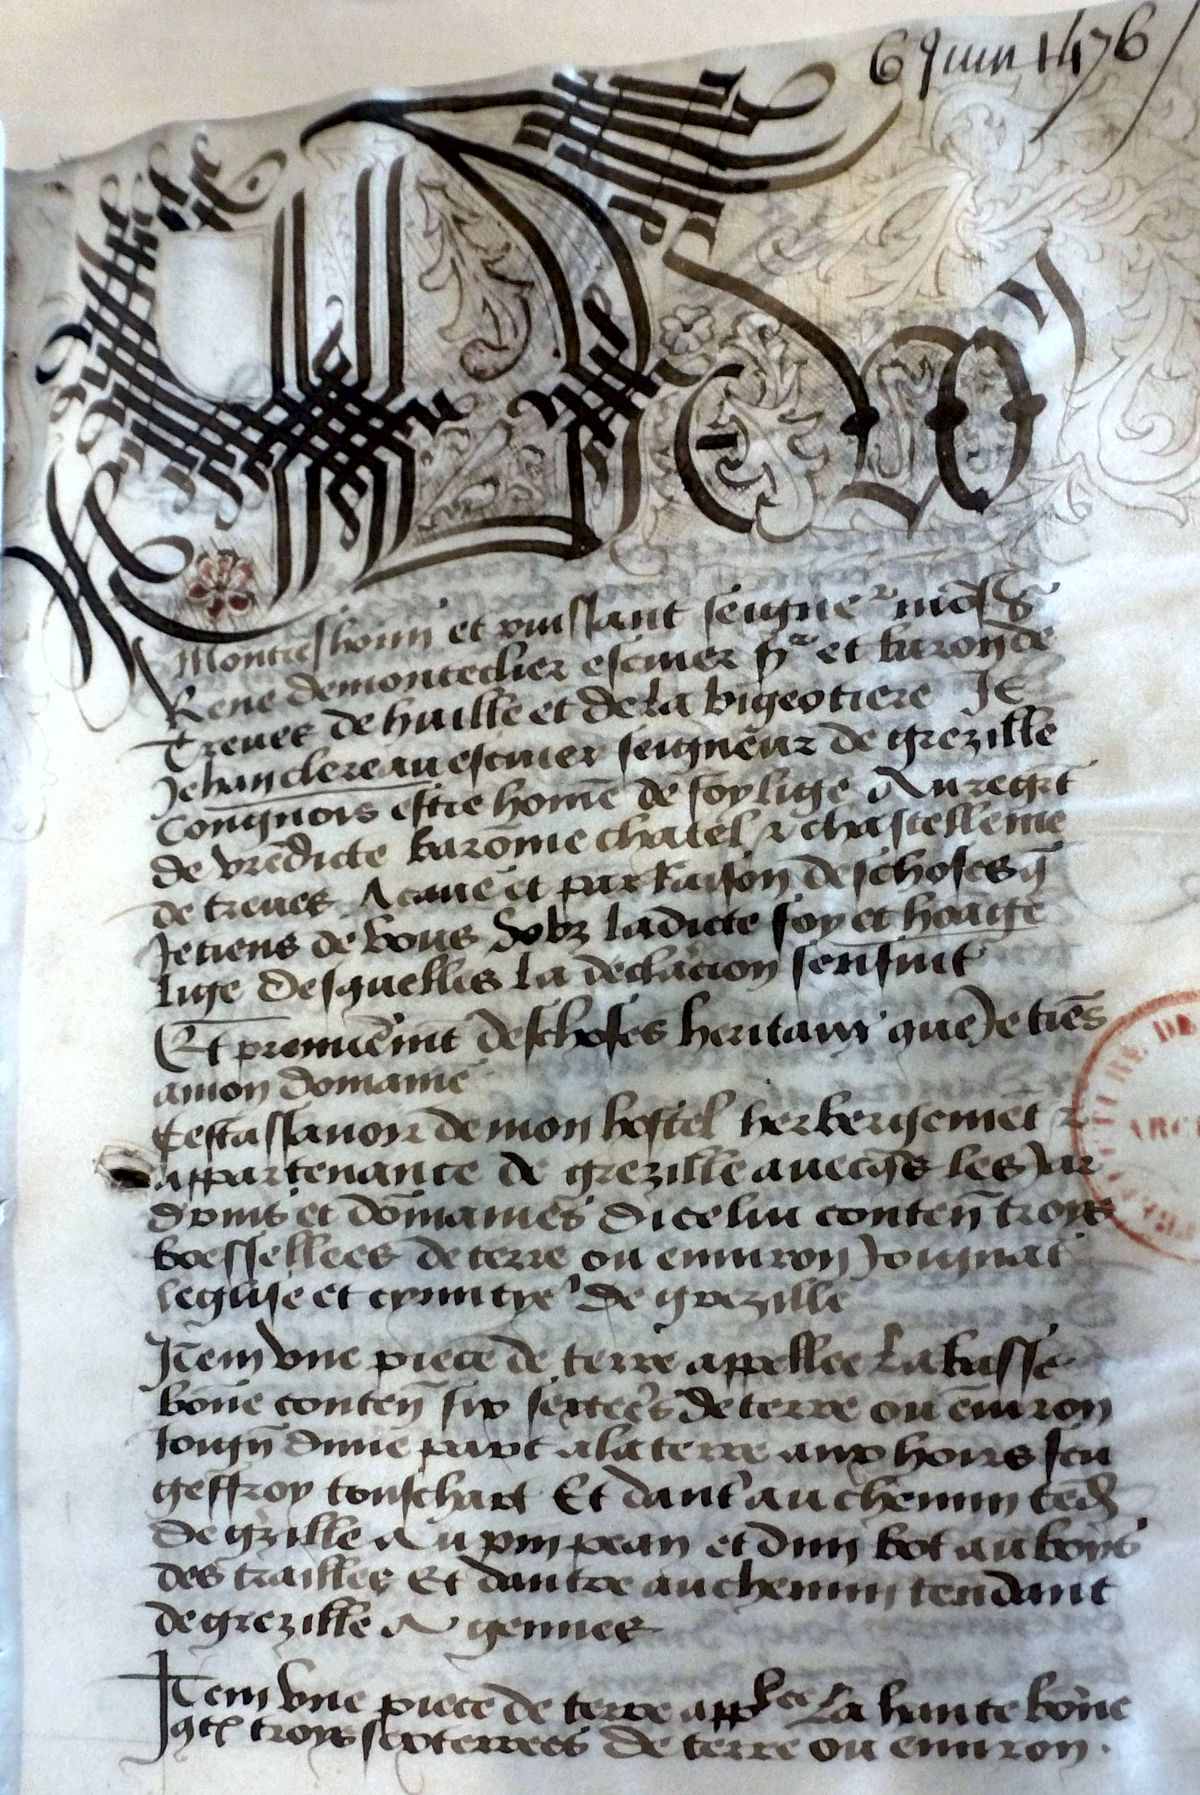 6 Juin 1476
De vo
Mon treshonn et puissant seigne r mōsr
Rene de montecler escuier sr et baron de
Treves de huille et de la bigeotiere Je
Jehan clereau escuier seigneur de grezille
Congnois estre home de foy lige Au regrt
de vredicte baronie chatel & chastellenie
de treves A cause et par Raison des choses q
Je tiens de vous Soubz ladicte foy et homage
lige desquelles la declaracion sensuit
Et premierement des choses heritaux que Je tiens
a mon domaine
Cest assavoir de mon hostel herbergement &
appartenance de grezille avecqs les Jar
dyns et domaines dicelui conten troys
boessellees de terre ou environ Joignāt
leglise et cymitye de grezille
Item Une piece de terre appellee La basse
bone conten six sextees de terre ou environ
Joign dune part a la terre aux hoirs feu
geffroy touschart Et dautr au chemin tend
de grzille Au pin pean et dun bot au boys
des trailles Et dautre au chemin tendant
de grezille A gennes
Item Une piece de terre applee La haute bone
9t troys sexterrees de terre ou environ
ARC